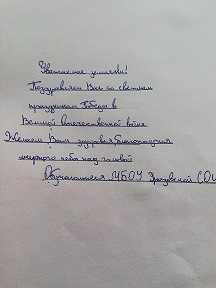 Уважаемые учителя!
Поздравляем Вас со светлым
праздником Победы в
Великой отечественной войне
Желаем Вам здоровья благополучия
мирного неба над головой
Обучающиеся МБОУ